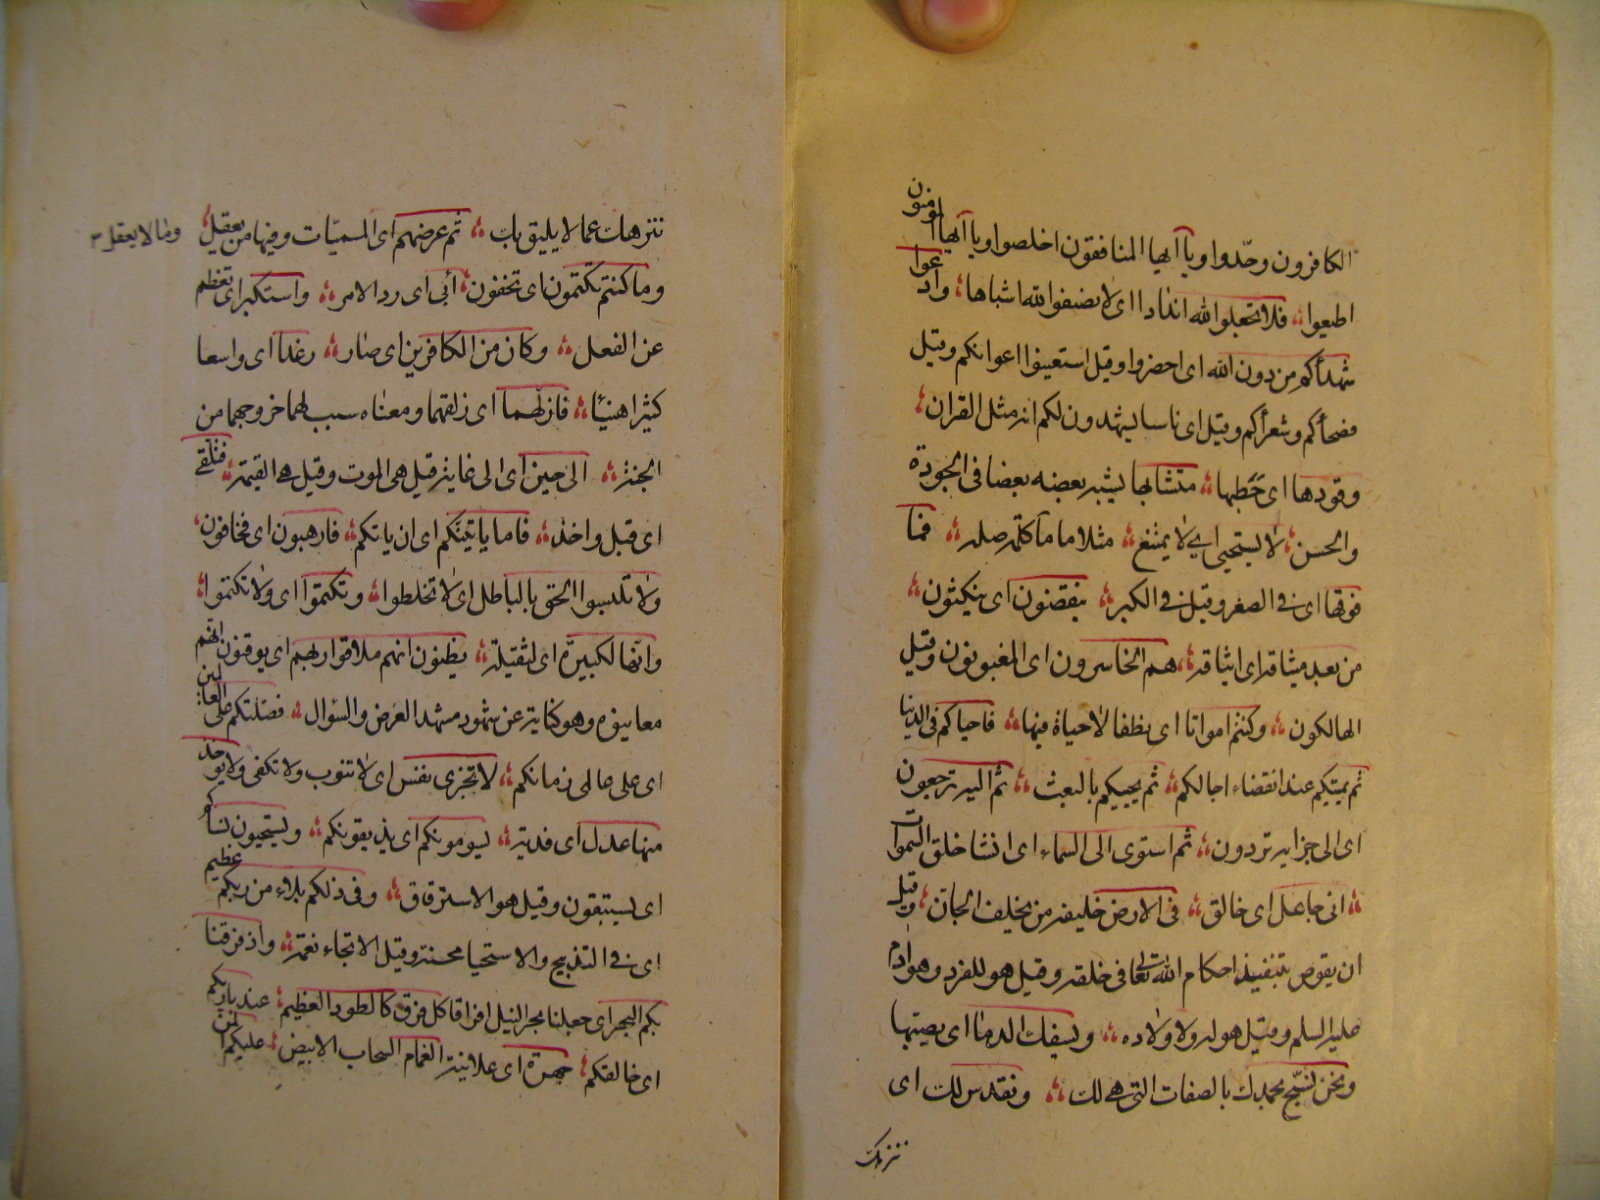 الكافرون وحّدوا ويا آيها المنافقون اخلصوا ويا آيها المومنون
اطيعوا فلا تجعلوا لله اندادا اى لا تضيفوا لله اشباها وادعوا
شهدأكم من دون الله اى احضروا وقيل استعينوا اعوانكم وقيل
فصحأكم وشعرأكم وقيل اى ناسا يشهدون لكم انه مثل القران
وقودها اى حطبها متشابها يشبه بعضه بعضا فى الجودة
والحسن لا يستحيى اى لا يمتنع مثلا ما ما كلمة صلة فما
فوقها اى فى الصغر وقيل فى الكبر ينقضون اى ينكثون
من بعد ميثاقه اى ايثاقه هم الخاسرون اى المغبونون وقيل
الهالكون وكنتم امواتا اى نطفا لا حياة فيها فاحياكم فى الدنيا
ثم يميتكم عند انقضاء اجالكم ثم يحييكم بالبعث ثم اليه ترجعون
اى الى جزايه تردون ثم استوى الى السماء اى انشا خلق السموات
انى جاعل اى خالق فى الارض خليفة من يخلف الجان وقيل
ان يقوض بتنفيذ احكام الله تعالى فى خلقه وقيل هو للفرد وهو ادم
عليه السلم وقيل هو له ولاولاده ويسفك الدما اى يصبها
ونحن نسبح بحمدك بالصفات التى هى لك ونقدس لك اى
ننزهك
ننزهك عما لا يليق بك ثم عرضهم اى المسميات وفيها من يعقل
وما لا يعقل
وما كنتم تكتمون اى تخفون أبى اى رد الامر واستكبر اى تعظم
عن الفعل وكان من الكافرين اى صار رغدا اى واسعا
كثيرا هنيئا فازلهما اى زلقهما ومعناه سبب لهما خروجهما من
الجنة الى حين اى الى غاية قيل هى الموت وقيل هى القيمة فتلقى
اى قبل واخذ فاما ياتينكم اى ان ياتكم فارهبون اى فخافون
ولا تلبسوا الحق بالباطل اى لا تخلطوا وتكتموا اى ولا تكتموا
وانها لكبيرة اى لثقيلة يظنون انهم ملاقوا ربهم اى يوقنون انهم
معاينوه وهو كناية عن شهود مشهد العرض والسؤال فضلتكم على العالمين
اى على عالمى زمانكم لا تجزى نفس اى لا تنوب ولا تكفى ولا يوخذ
منها عدل اى فدية يسومونكم اى يذيقونكم ويستحيون نسأكم
اى يستبقون وقيل هو الاسترقاق وفى ذلكم بلاء من ربكم عظيم
اى فى التذبيح والاستحيا محنة وقيل الانجاء نعمة واذ فرقنا
بكم البحر اى جعلنا بحر النيل افراقا كل فرق كالطود العظيم عند باريكم
اى خالقكم جهرة اى علانية الغمام السحاب الابيض عليكم المن